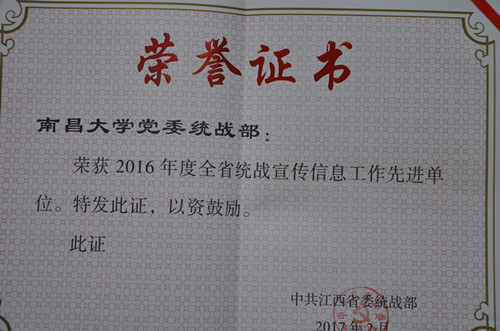 荣誉证书
南昌大学党委统战部：
荣获 2016 年度全省统战宣传信息工作先进单
位。特发此证，以资鼓励。
此证
中共江西省委统战部
2017 年 2 月